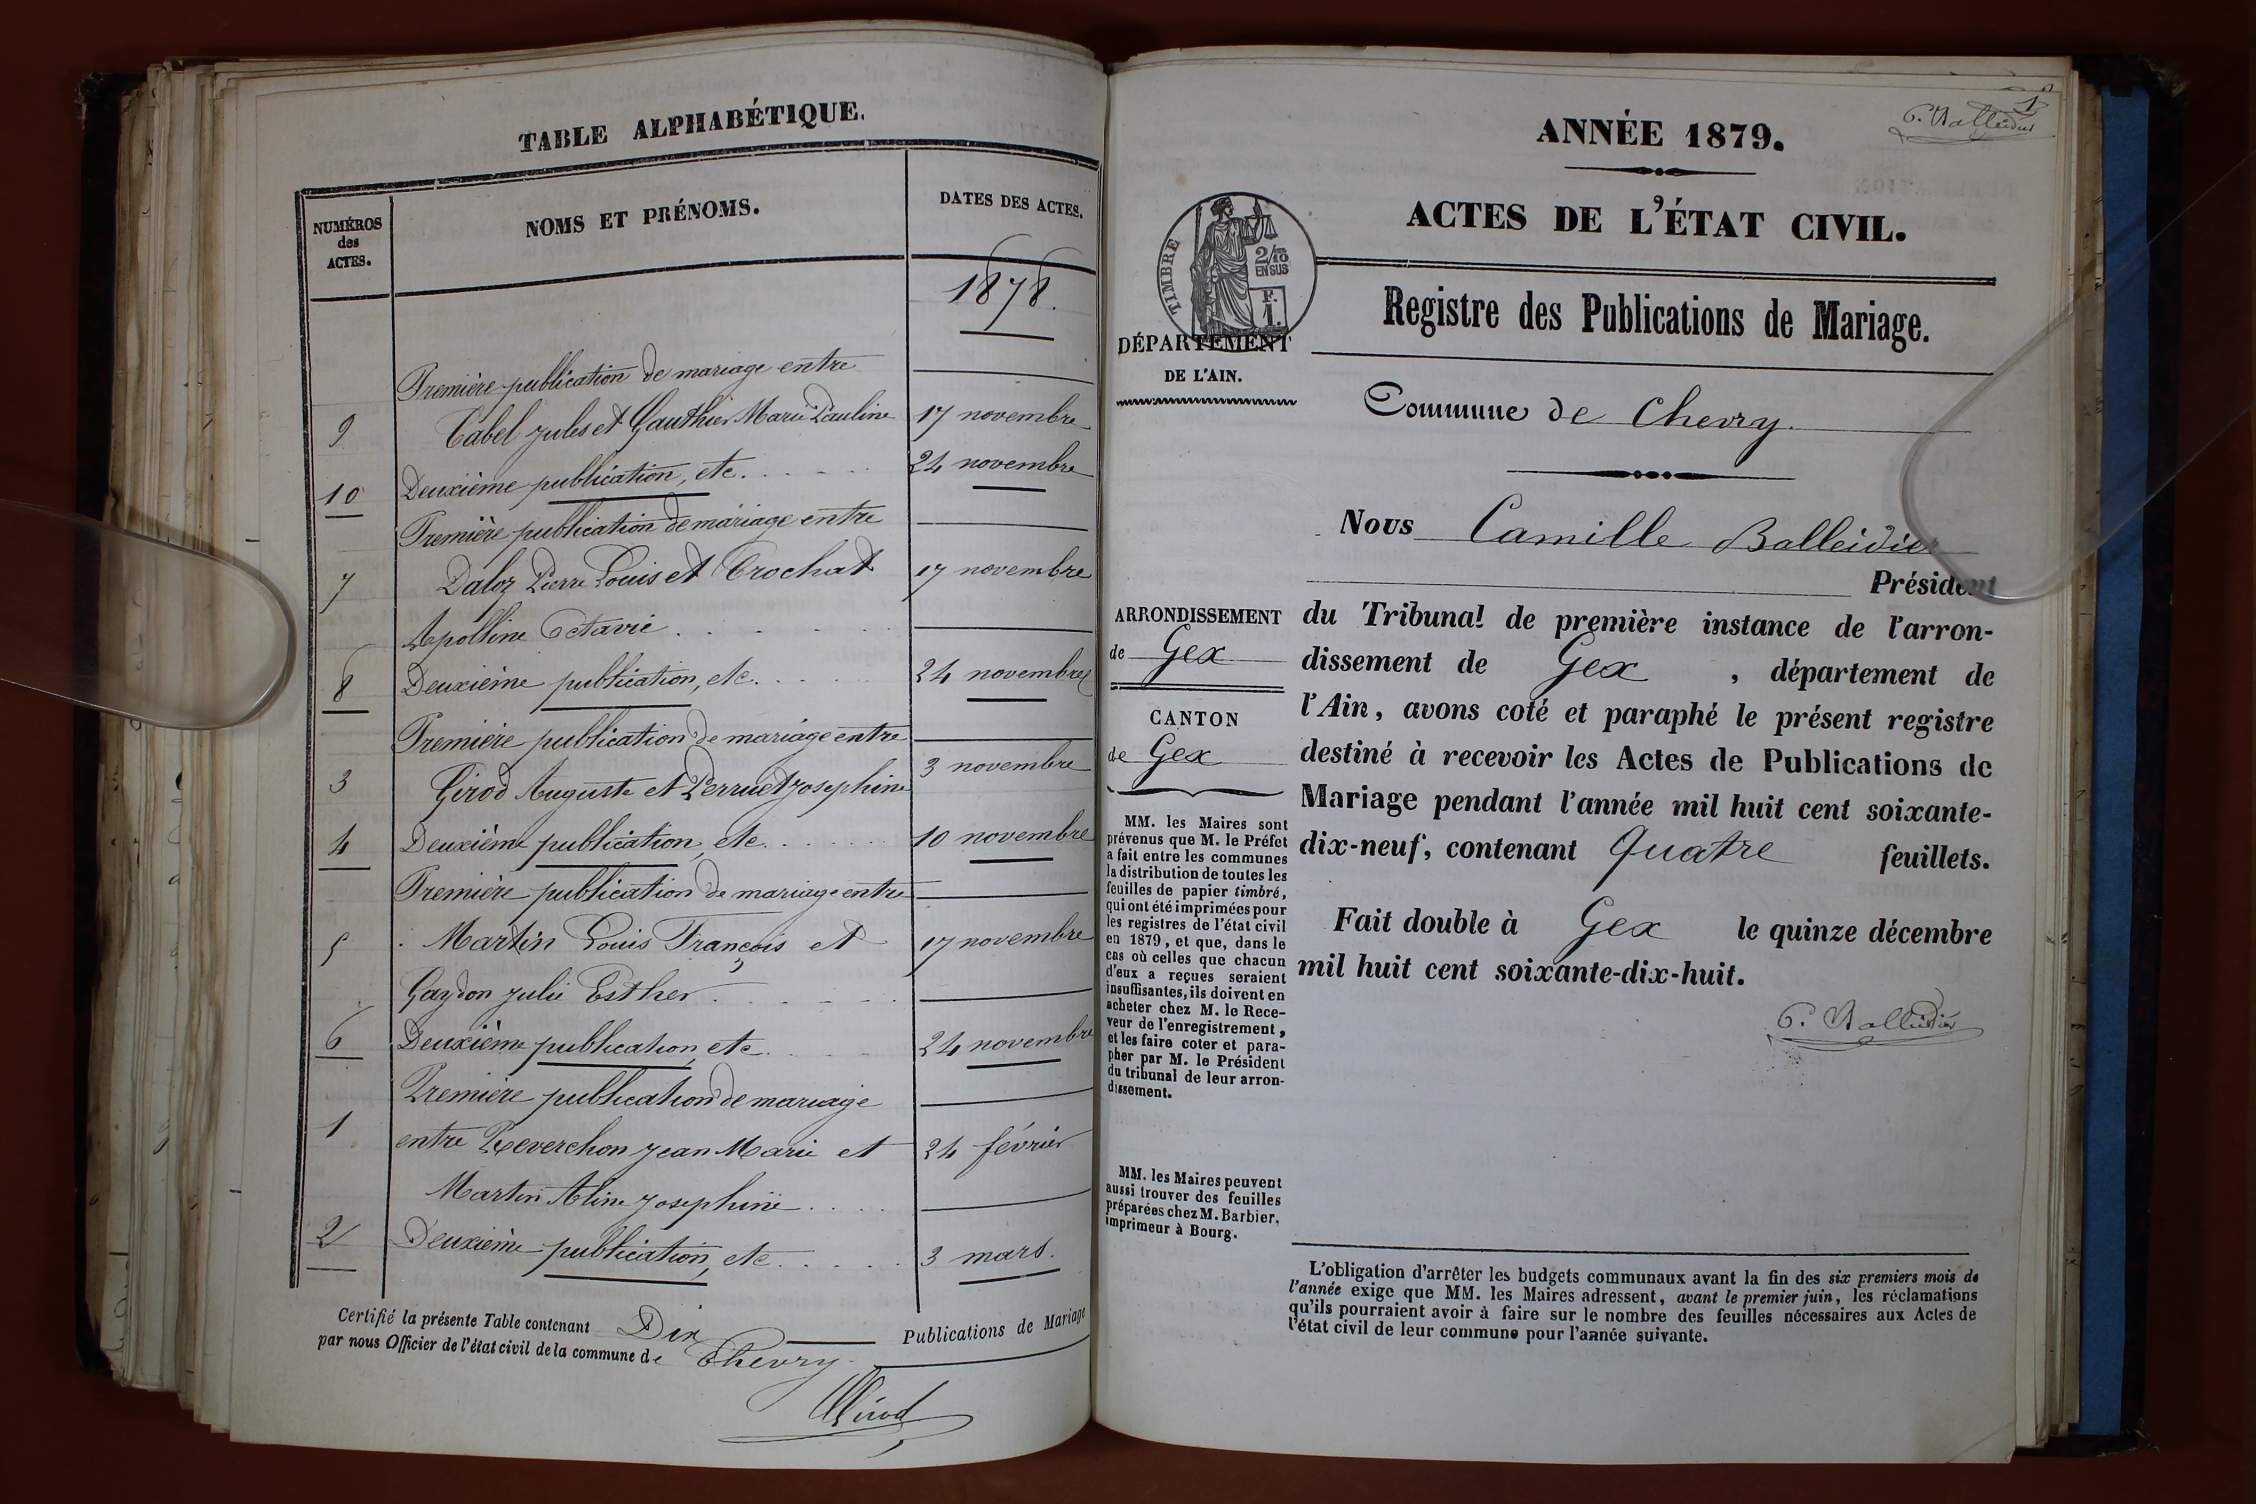 TABLE ALPHABÉTIQUE.
NUMÉROS des ACTES.
NOMS ET PRÉNOMS.
DATES DES ACTES.
1878.
Première publication de mariage entre
9 Cabel Jules et Gauthier Marie Pauline 17 novembre
10 Deuxième publication, etc. 24 novembre
Première publication de mariage entre
7 Daloz Pierre Louis et Crochat 17 novembre
Apolline Octavie
8 Deuxième publication, etc. 24 novembre
Première publication de mariage entre
3 Girod Auguste et Perruet Josephine 3 novembre
4 Deuxième publication, etc. 10 novembre
Première publication de mariage entre
5 Martin Louis François et 17 novembre
Gaydon Julie Esther
6 Deuxième publication, etc. 24 novembre
Première publication de mariage
1 entre Reverchon Jean Marie et 24 février
Martin Aline Josephine
2 Deuxième publication, etc. 3 mars.
Certifié la présente Table contenant Dix Publications de Mariage
par nous Officier de l'état civil de la commune de Chevry.
Girod
1
C. Balleidier
ANNÉE 1879.
ACTES DE L'ÉTAT CIVIL.
TIMBRE
2/10
EN SUS
F.
1.
Registre des Publications de Mariage.
DÉPARTEMENT
DE L'AIN.
Commune de Chevry.
Nous Camille Balleidier
Président
ARRONDISSEMENT
de Gex
CANTON
de Gex
du Tribunal de première instance de l'arron-
dissement de Gex, département de
l'Ain, avons coté et paraphé le présent registre
destiné à recevoir les Actes de Publications de
Mariage pendant l'année mil huit cent soixante-
dix-neuf, contenant Quatre feuillets.
Fait double à Gex le quinze décembre
mil huit cent soixante-dix-huit.
C. Balleidier
MM. les Maires sont
prévenus que M. le Préfet
a fait entre les communes
la distribution de toutes les
feuilles de papier timbré,
qui ont été imprimées pour
les registres de l'état civil
en 1879, et que, dans le
cas où celles que chacun
d'eux a reçues seraient
insuffisantes, ils doivent en
acheter chez M. le Rece-
veur de l'enregistrement,
et les faire coter et para-
pher par M. le Président
du tribunal de leur arron-
dissement.
MM. les Maires peuvent
aussi trouver des feuilles
préparées chez M. Barbier,
imprimeur à Bourg.
L'obligation d'arrêter les budgets communaux avant la fin des six premiers mois de
l'année exige que MM. les Maires adressent, avant le premier juin, les réclamations
qu'ils pourraient avoir à faire sur le nombre des feuilles nécessaires aux Actes de
l'état civil de leur commune pour l'année suivante.